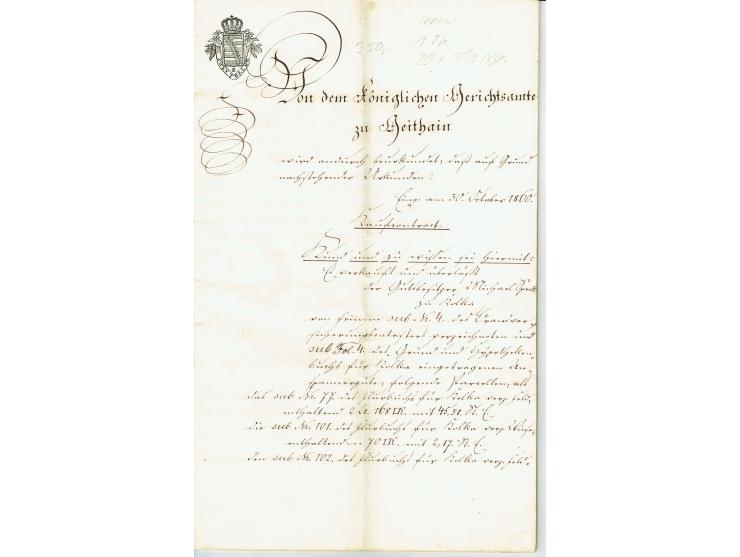 350,-
1 Th.
Von dem Königlichen Gerichtsamte
zu Geithain
wird andurch beurkundet, daß auf Grund
nachstehender Urkunden:
Eing. am 30. October 1860.
Kaufcontract.
Kund und zu wissen sei hiermit:
Es verkauft und überläßt
der Gutsbesitzer Michael
zu Kolka
von seinem sub № 4. des Brandver-
sicherungscatasters verzeichneten und
sub Fol. 4. des Grund und Hypotheken-
buchs für Kolka eingetragenen An-
spannergute, folgende Parcellen, als
das sub № 77. des Flurbuchs für Kolka verz. Feld,
enthaltend 2 A. 168 □R. mit 45,31. St. E.
die sub № 101. des Flurbuchs für Kolka verz. Wiese,
enthaltend 70 □R. mit 2,17. St. E.
den sub № 102. des Flurbuchs für Kolka verz. Feld-